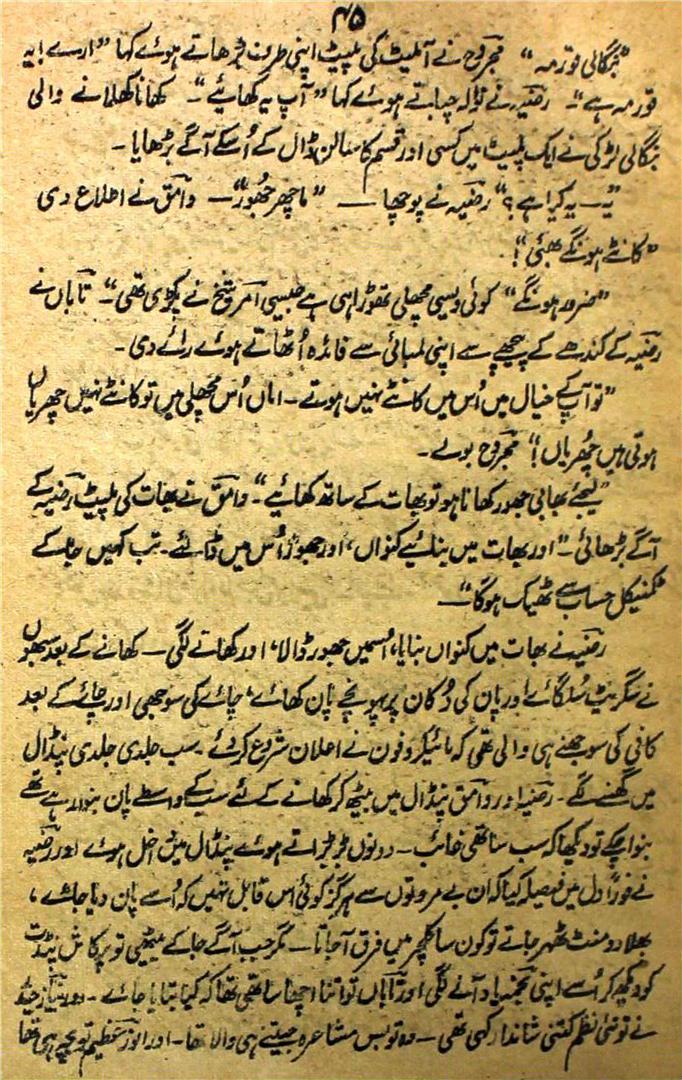 ۴۵
"بنگالی قورمہ" مجروح نے آملیٹ کی پلیٹ اپنی طرف بڑھاتے ہوئے کہا "ارے ایہ
قورمہ ہے"۔ رضیہ نے نوالہ چباتے ہوئے کہا "آپ یہ کھائیے"۔ کھانا کھلانے والی
بنگالی لڑکی نے ایک پلیٹ میں کسی اور قسم کا سالن ڈال کے اُسکے آگے بڑھایا۔
"یہ۔ یہ کیا ہے؟" رضیہ نے پوچھا — "ماچھر جھبور"۔ وامق نے اطلاع دی
"کانٹے ہونگے بھئی"!
"ضرور ہونگے" کوئی ویسی مچھلی تھوڑا ہی ہے جیسی امر شیخ نے پکڑی تھی"۔ تاباں نے
رضیہ کے کندھے کے پیچھے سے اپنی لمبائی سے فائدہ اُٹھاتے ہوئے رائے دی۔
"تو آپکے خیال میں اُس میں کانٹے نہیں ہوتے۔ اماں اُس مچھلی میں تو کانٹے نہیں چھریاں
ہوتی ہیں چُھریاں!" مجروح بولے۔
"لیجئے بھابی جھور کھانا ہو تو بھات کے ساتھ کھائیے"۔ وامق نے بھات کی پلیٹ رضیہ کے
آگے بڑھائی۔ "اور بھات میں بنائیے کنواں، اور جھبور اُس میں ڈالئے۔ تب کہیں جا کے
ٹکنیکل حساب سے ٹھیک ہوگا"—
رضیہ نے بھات میں کنواں بنایا، اُسمیں جھبور ڈالا، اور کھانے لگی۔ کھانے کے بعد سبھوں
نے سگریٹ سُلگائے اور پان کی دُکان پر پہونچے پان کھائے، چائے کی سوجھی اور چائے کے بعد
کافی کی سوجھنے ہی والی تھی کہ مائیکروفون نے اعلان شروع کر دئے۔ سب جلدی جلدی پنڈال
میں گھسنے لگے۔ رضیہ اور وامق پنڈال میں بیٹھ کر کھانے کے لئے سب کے واسطے پان بنوا رہے تھے
بنوا چکے تو دیکھا کہ سب ساتھی غائب۔ دونوں بڑبڑاتے ہوئے پنڈال میں داخل ہوئے اور رضیہ
نے فوراً دل میں فیصلہ کیا کہ ان بے مروتوں سے ہرگز کوئی اس قابل نہیں کہ اُسے پان دیا جائے،
بھلا دو منٹ ٹھہر جاتے تو کون سا کلچر میں فرق آجاتا۔ مگر جب آگے جا کے بیٹھی تو پرکاش پنڈت
کو دیکھ کر اُسے اپنی نجمہ یاد آنے لگی اور تاباں تو اتنا اچھا ساتھی تھا کہ کیا بتایا جائے۔ اور نیاز حیدر
نے تو نئی نظم کتنی شاندار کہی تھی۔ وہ تو بس مشاعرہ جیتنے ہی والا تھا۔ اور انور عظیم تو بچے ہی تھا